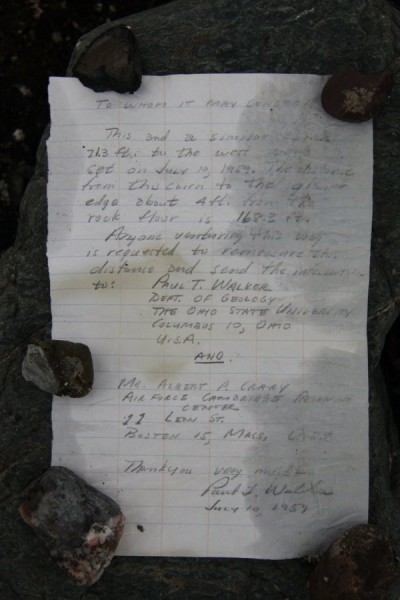 TO WHOM IT MAY CONCERN
This and a similar
21.3 ft. to the west were
set on July 10, 1959. The distance
from this cairn to the glacier
edge about 4 ft. from the
rock floor is 168.3 ft.
Anyone venturing this way
is requested to remeasure this
distance and send the information
to: PAUL T. WALKER
DEPT. OF GEOLOGY
THE OHIO STATE UNIVERSITY
COLUMBUS 10, OHIO
U.S.A.
AND.
MR. ALBERT P. CRARY
AIR FORCE CAMBRIDGE RESEARCH
CENTER
11 LEON ST.
BOSTON 15, MASS. U.S.A.
Thankyou very much
Paul T. Walker
July 10, 1959